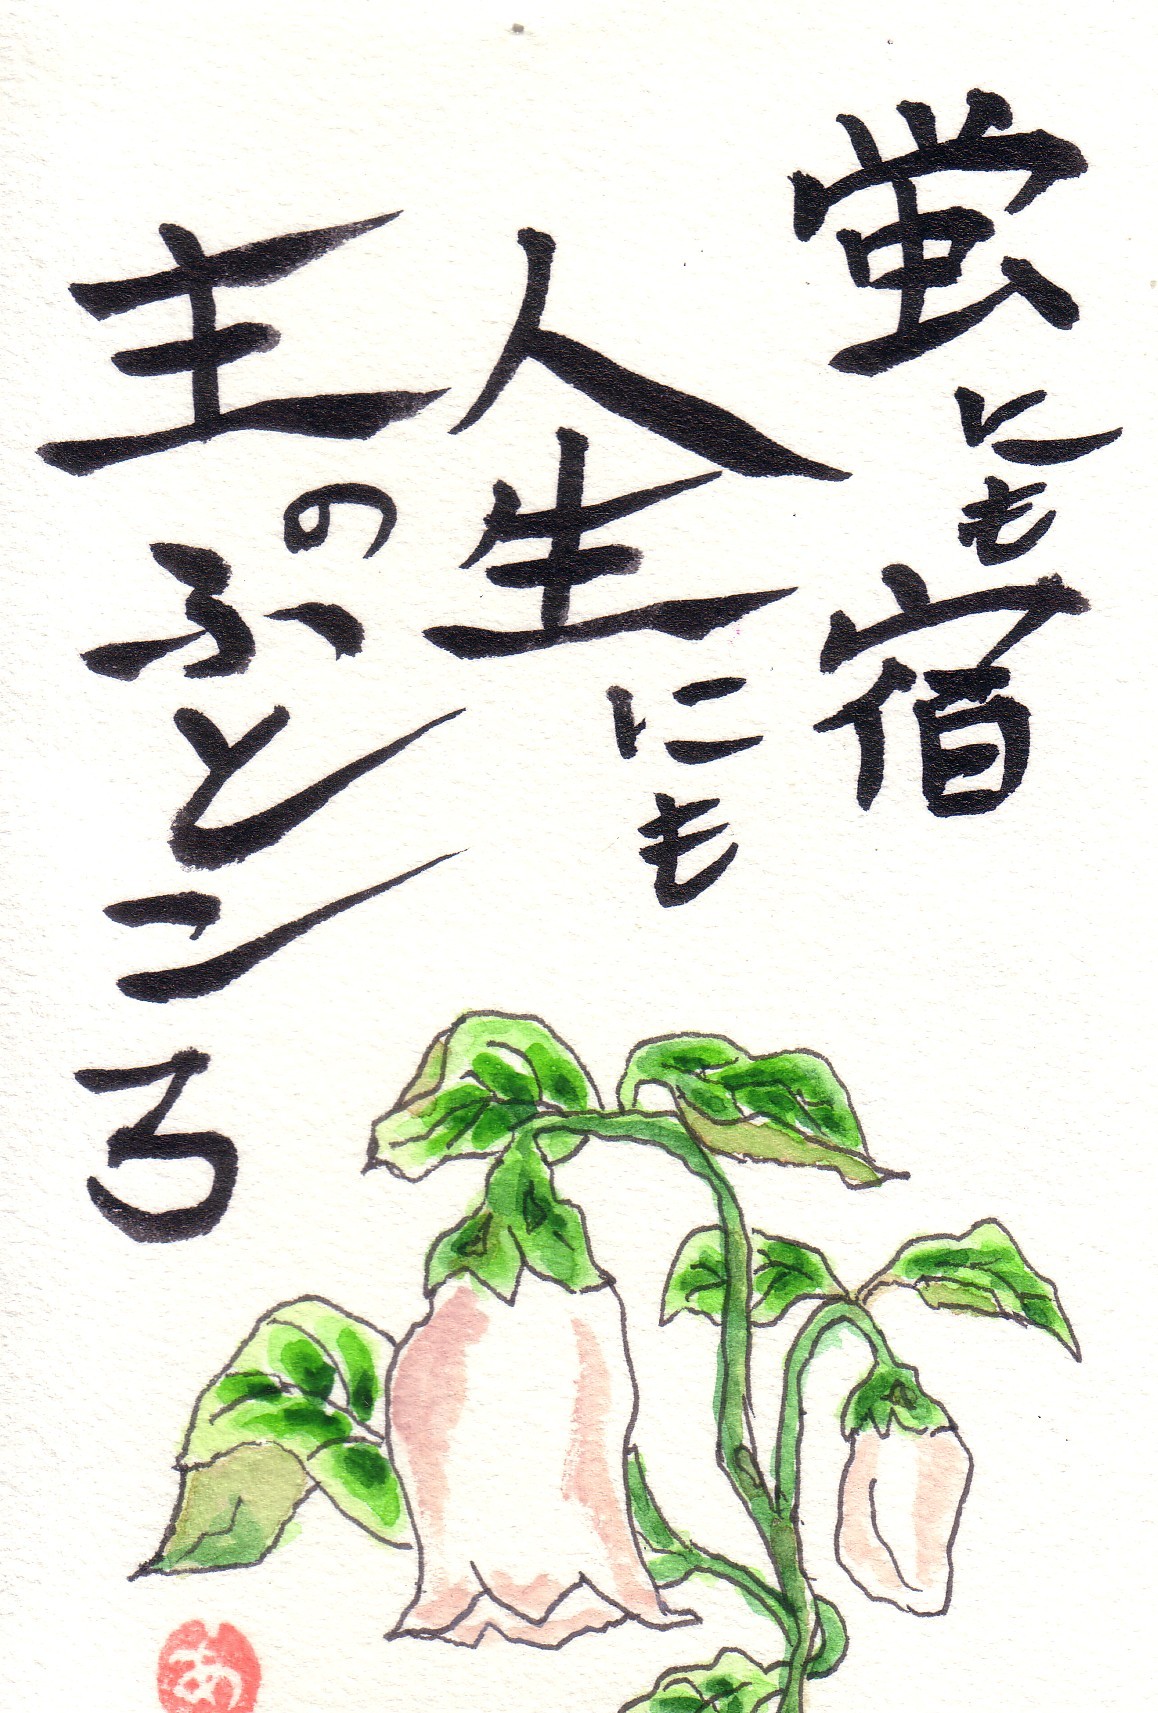 蛍にも宿
人生にも
主のふところ
あ